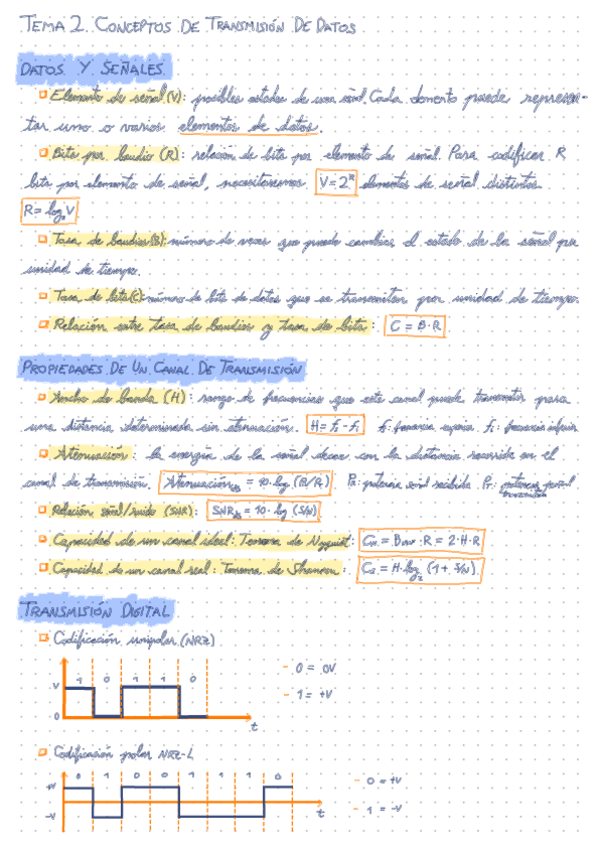 TEMA 2. CONCEPTOS DE TRANSMISIÓN DE DATOS
DATOS Y SEÑALES
Elemento de señal (V): posibles estados de una señal. Cada elemento puede represen-
tar uno o varios elementos de datos.
Bits por baudio (R): relación de bits por elemento de señal. Para codificar R
bits por elemento de señal, necesitaremos V=2^R elementos de señal distintos.
R= log₂V
Tasa de baudios (B): número de veces que puede cambiar el estado de la señal por
unidad de tiempo.
Tasa de bits (C): número de bits de datos que se transmiten por unidad de tiempo.
Relación entre tasa de baudios y tasa de bits: C = B·R
PROPIEDADES DE UN CANAL DE TRANSMISIÓN
Ancho de banda (H): rango de frecuencias que este canal puede transmitir para
una distancia determinada sin atenuación. H= f₂ - f₁ f₂: frecuencia superior. f₁: frecuencia inferior
Atenuación: la energía de la señal decae con la distancia recorrida en el
canal de transmisión. Atenuación dB = 10·log (Pr/Pt) Pr: potencia señal recibida. PT: potencia señal
transmitida
Relación señal/ruido (SNR): SNR dB = 10·log (S/N)
Capacidad de un canal ideal: Teorema de Nyquist: Cn = Bmax·R = 2·H·R
Capacidad de un canal real: Teorema de Shannon: Cs = H·log₂ (1 + S/N)
TRANSMISIÓN DIGITAL
Codificación unipolar (NRZ)
1 0 1 1 0
V
0
t
- 0 = 0V
- 1 = +V
Codificación polar NRZ-L
0 1 0 0 1 1 1 0
+V
-V
t
- 0 = +V
- 1 = -V